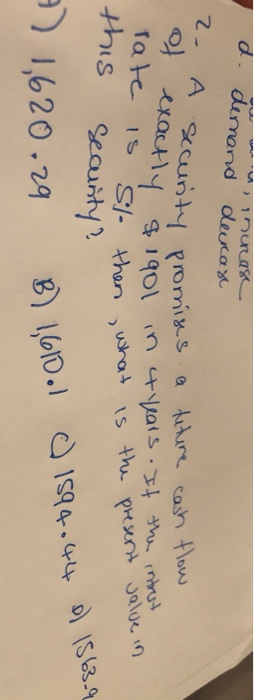 increase
d. demand decrease
2- A security promises a future cash flow
of exactly $1901 in 4 years. If the intrst
rate is 5% then, what is the present value in
this security?
A) 1,620.29 B) 1,610.1 C) 1594.44 D) 1563.9